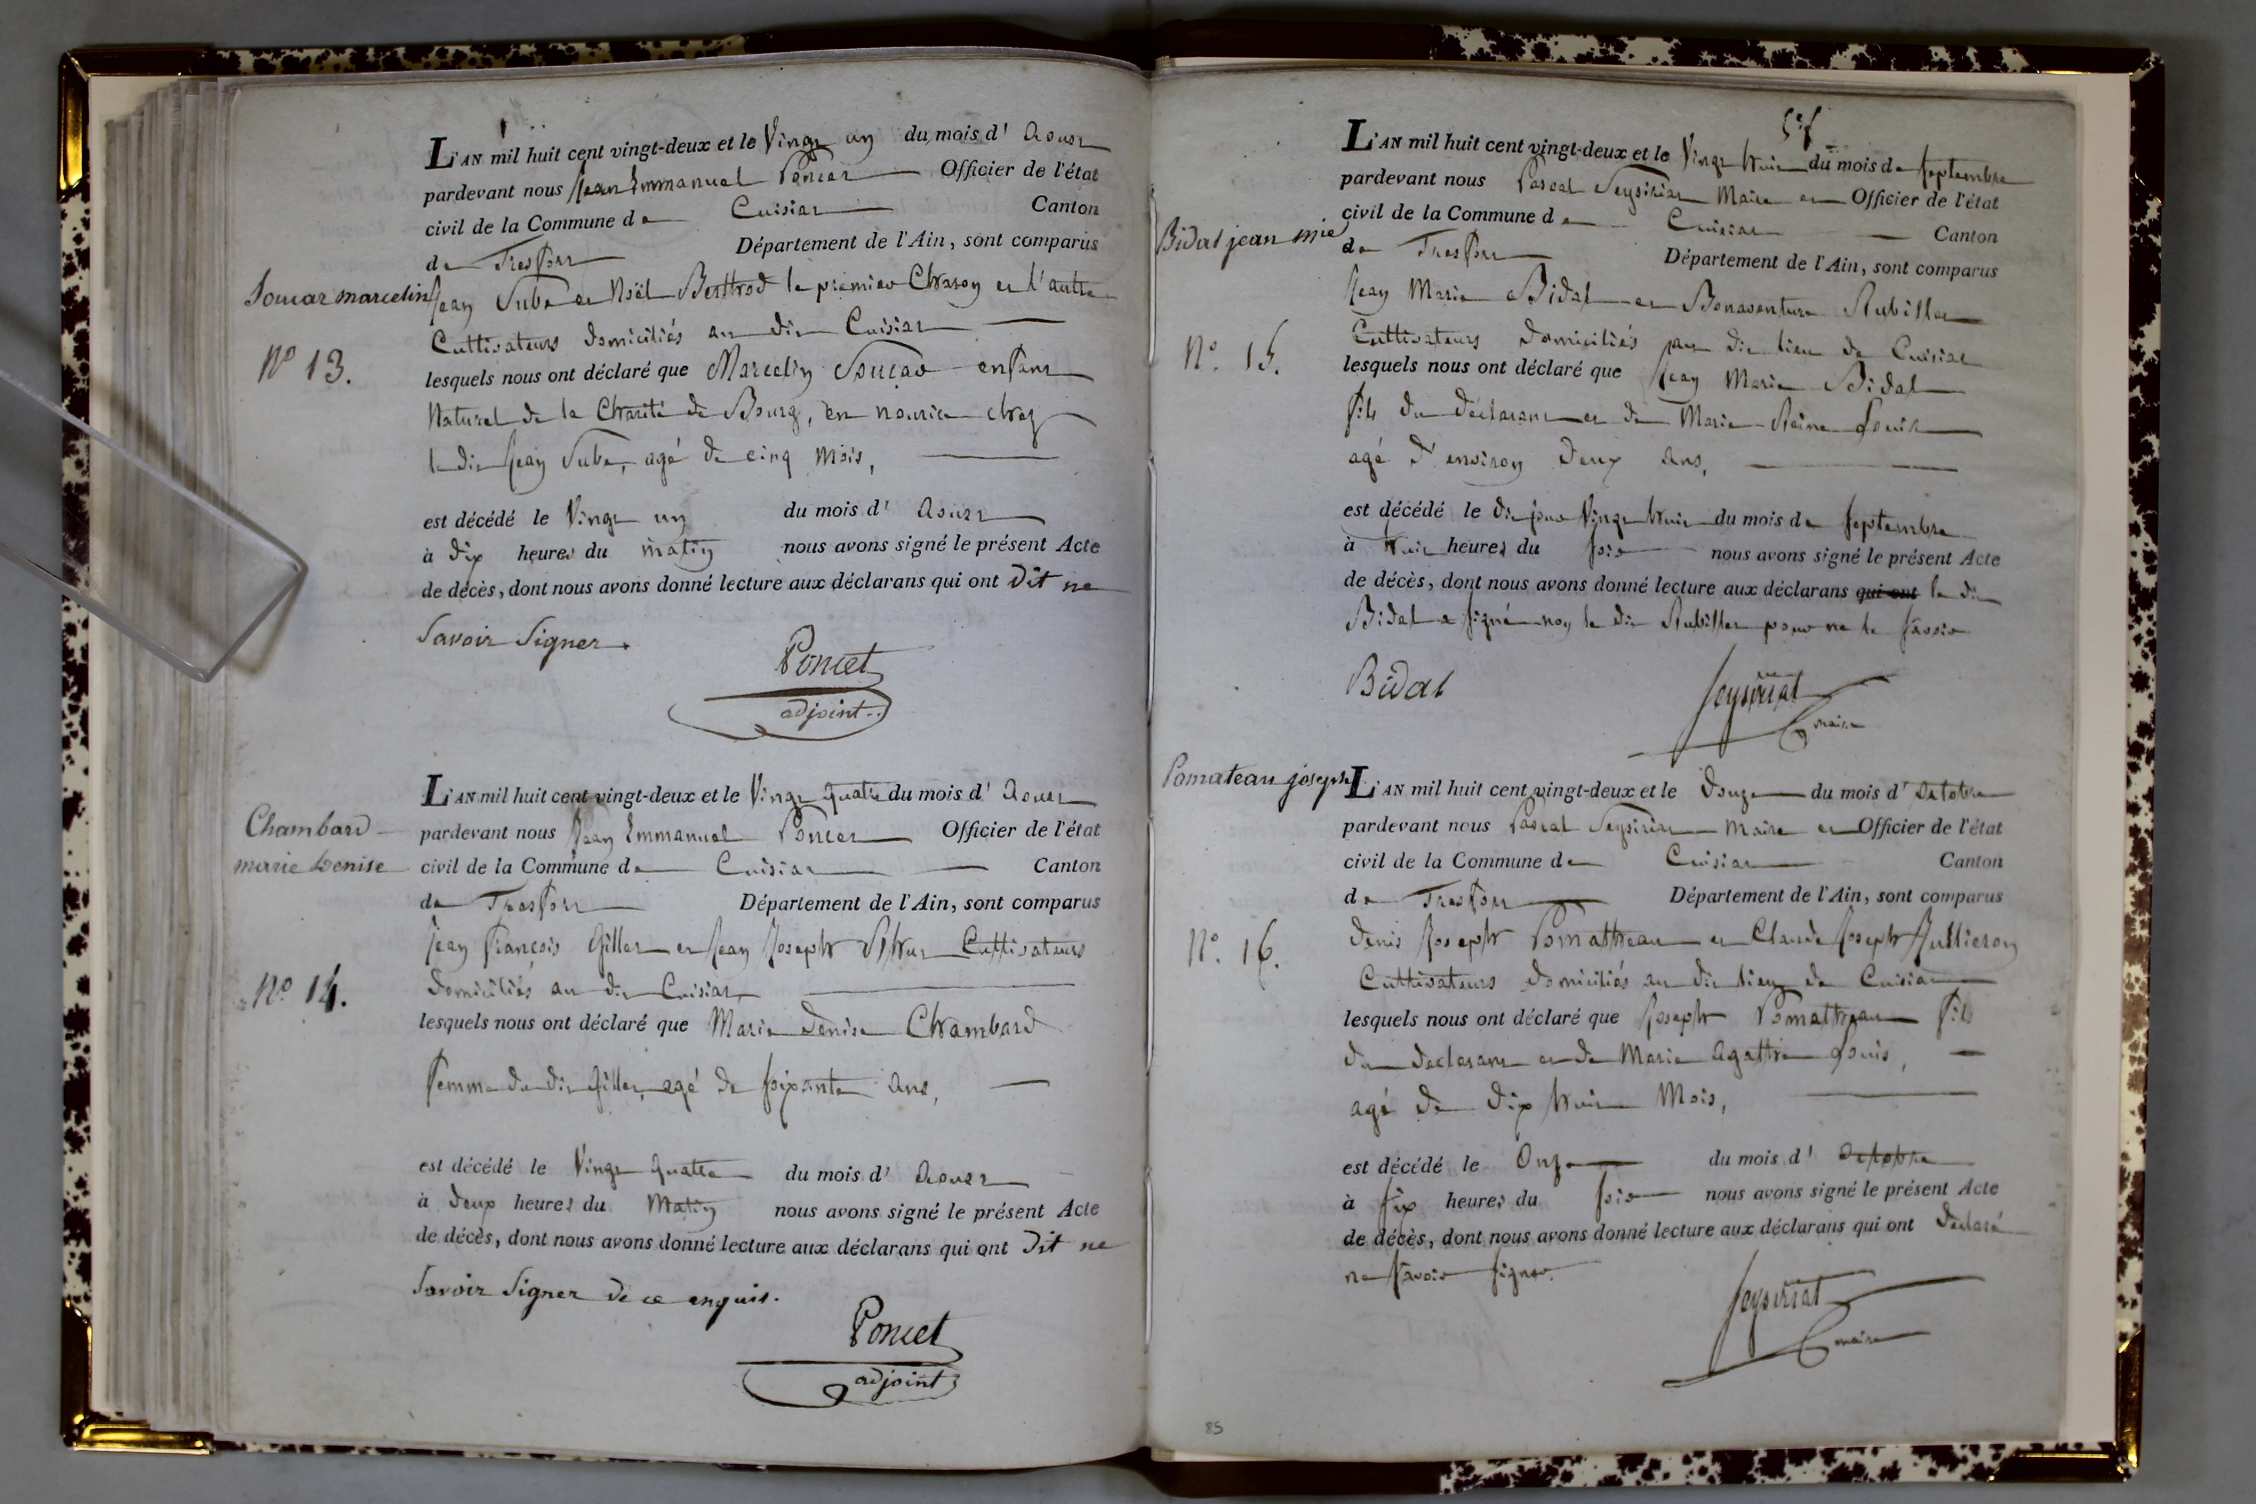 L'AN mil huit cent vingt-deux et le Vingt un du mois d' Aoust
pardevant nous Jean Emmanuel Poncet Officier de l'état
civil de la Commune de Cuisiat Canton
de Treffort Département de l'Ain, sont comparus
Jean Sube et Noël Berthod le premier Charon et l'autre
Cultivateurs domiciliés au dit Cuisiat
lesquels nous ont déclaré que Marcelin enfant
Naturel de la Charité de Bourg, en nourice chez
le dit Jean Sube, agé de cinq Mois,
est décédé le Vingt un du mois d' Aoust
à dix heures du matin nous avons signé le présent Acte
de décès, dont nous avons donné lecture aux déclarans qui ont dit ne
Savoir Signer.
Poncet
adjoint
marcelin
N° 13.
L'AN mil huit cent vingt-deux et le Vingt quatre du mois d' Aoust
pardevant nous Jean Emmanuel Poncet Officier de l'état
civil de la Commune de Cuisiat Canton
de Treffort Département de l'Ain, sont comparus
Jean François Gillet et Jean Joseph Cultivateurs
domiciliés au dit Cuisiat
lesquels nous ont déclaré que Marie denise Chambard
femme du dit Gillet, agé de soixante ans,
est décédé le Vingt quatre du mois d' Aoust
à deux heures du Matin nous avons signé le présent Acte
de décès, dont nous avons donné lecture aux déclarans qui ont dit ne
Savoir Signer de ce enquis.
Poncet
adjoint
Chambard
marie denise
N° 14.
L'AN mil huit cent vingt-deux et le Vingt huit du mois de septembre
pardevant nous Pascal Seysiriat Maire et Officier de l'état
civil de la Commune de Cuisiat Canton
de Treffort Département de l'Ain, sont comparus
Jean Marie Bidal et Bonaventure Rubillet
Cultivateurs domiciliés au dit lieu de Cuisiat
lesquels nous ont déclaré que Jean Marie Bidal
fils du déclarant et de Marie Reine Louis
agé d'environ deux ans,
est décédé le dit jour Vingt huit du mois de septembre
à huit heures du soir nous avons signé le présent Acte
de décès, dont nous avons donné lecture aux déclarans qui ont le dit
Bidal a signé non le dit Rubillet pour ne le savoir
Bidal
Seysiriat
maire
Bidal jean mie
N°. 15.
L'AN mil huit cent vingt-deux et le douze du mois d' octobre
pardevant nous Pascal Seysiriat Maire et Officier de l'état
civil de la Commune de Cuisiat Canton
de Treffort Département de l'Ain, sont comparus
denis Joseph Pomatheau et Claude Joseph Jullieron
Cultivateurs domiciliés au dit lieu de Cuisiat
lesquels nous ont déclaré que Joseph Pomatheau fils
du declarant et de Marie Agathe Louis,
agé de dix huit Mois,
est décédé le Onze du mois d' octobre
à six heures du soir nous avons signé le présent Acte
de décès, dont nous avons donné lecture aux déclarans qui ont déclaré
ne savoir signer.
Seysiriat
maire
Pomateau joseph
N°. 16.
85